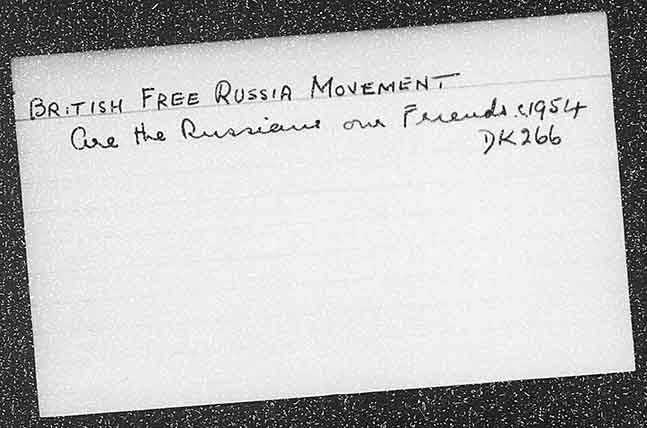 BRITISH FREE RUSSIA MOVEMENT
Are the Russians our Friends. c1954
DK266